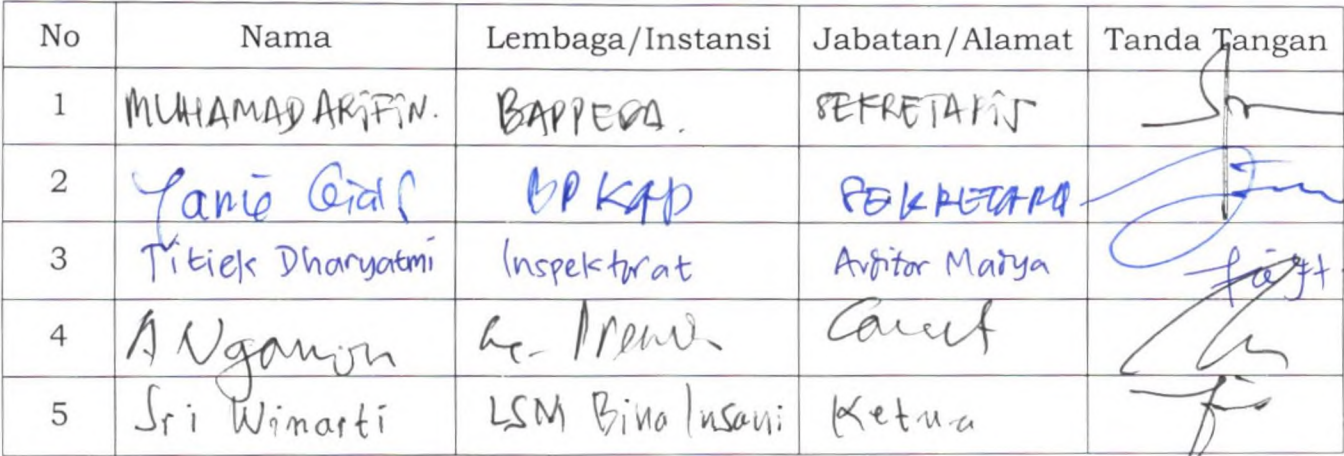 No Nama Lembaga/Instansi Jabatan/Alamat Tanda Tangan
1 MUHAMAD ARIFIN. BAPPEDA. SEKRETARIS
2 BPKAD
3 Titiek Dharyatmi Inspektorat Auditor Madya
4 Camat
5 Sri Winarti LSM Bina Insani Ketua